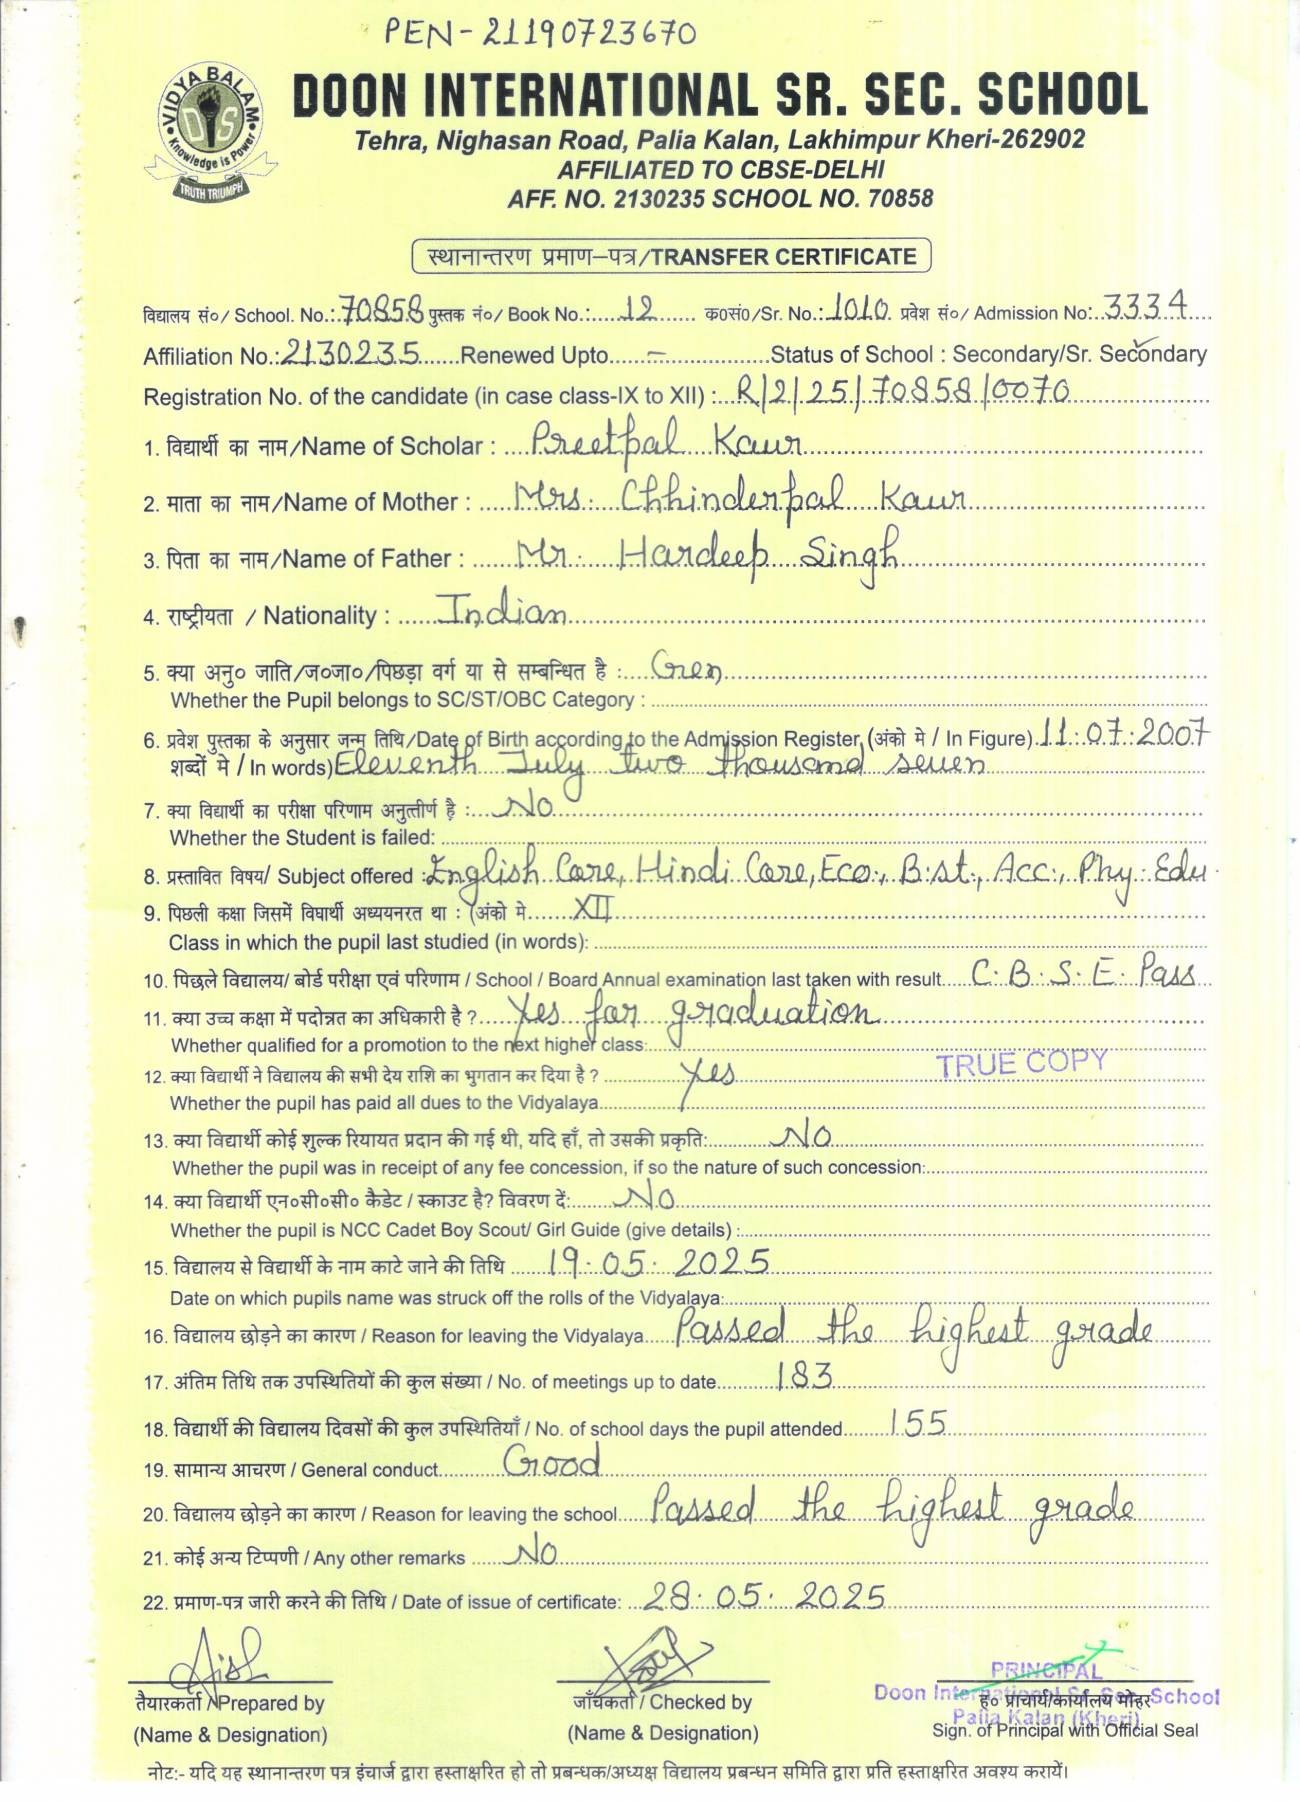 PEN-21190723670
VIDYA BALAM
DIS
Knowledge is Power
TRUTH TRIUMPH
DOON INTERNATIONAL SR. SEC. SCHOOL
Tehra, Nighasan Road, Palia Kalan, Lakhimpur Kheri-262902
AFFILIATED TO CBSE-DELHI
AFF. NO. 2130235 SCHOOL NO. 70858
स्थानान्तरण प्रमाण–पत्र/TRANSFER CERTIFICATE
विद्यालय सं०/ School. No.:70858 पुस्तक नं०/ Book No.:.....12...... क0सं0/Sr. No.:1010. प्रवेश सं०/ Admission No:..3334....
Affiliation No.:2130235......Renewed Upto......–................Status of School : Secondary/Sr. Secondary
Registration No. of the candidate (in case class-IX to XII) :...R/2/25/70858/0070
1. विद्यार्थी का नाम/Name of Scholar : ....Preetpal Kaur
2. माता का नाम/Name of Mother : .....Mrs. Chhinderpal Kaur
3. पिता का नाम/Name of Father : ......Mr. Hardeep Singh
4. राष्ट्रीयता / Nationality : ......Indian
5. क्या अनु० जाति/ज०जा०/पिछड़ा वर्ग या से सम्बन्धित है :....Gen
Whether the Pupil belongs to SC/ST/OBC Category :
6. प्रवेश पुस्तका के अनुसार जन्म तिथि/Date of Birth according to the Admission Register (अंको मे / In Figure) 11.07.2007
शब्दों मे / In words) Eleventh July two thousand seven
7. क्या विद्यार्थी का परीक्षा परिणाम अनुत्तीर्ण है :....No
Whether the Student is failed:
8. प्रस्तावित विषय/ Subject offered :English Core, Hindi Core, Eco., B.st., Acc., Phy. Edu.
9. पिछली कक्षा जिसमें विघार्थी अध्ययनरत था : (अंको मे.......XII
Class in which the pupil last studied (in words):
10. पिछले विद्यालय/ बोर्ड परीक्षा एवं परिणाम / School / Board Annual examination last taken with result.....C.B.S.E. Pass
11. क्या उच्च कक्षा में पदोन्नत का अधिकारी है ?....Yes for graduation
Whether qualified for a promotion to the next higher class:
12. क्या विद्यार्थी ने विद्यालय की सभी देय राशि का भुगतान कर दिया है ? ............Yes
TRUE COPY
Whether the pupil has paid all dues to the Vidyalaya
13. क्या विद्यार्थी कोई शुल्क रियायत प्रदान की गई थी, यदि हाँ, तो उसकी प्रकृति:.........No
Whether the pupil was in receipt of any fee concession, if so the nature of such concession:
14. क्या विद्यार्थी एन०सी०सी० कैडेट / स्काउट है? विवरण दें:......No
Whether the pupil is NCC Cadet Boy Scout/ Girl Guide (give details) :
15. विद्यालय से विद्यार्थी के नाम काटे जाने की तिथि ......19.05.2025
Date on which pupils name was struck off the rolls of the Vidyalaya:
16. विद्यालय छोड़ने का कारण / Reason for leaving the Vidyalaya....Passed the highest grade
17. अंतिम तिथि तक उपस्थितियों की कुल संख्या / No. of meetings up to date..........183
18. विद्यार्थी की विद्यालय दिवसों की कुल उपस्थितियाँ / No. of school days the pupil attended........155
19. सामान्य आचरण / General conduct..........Good
20. विद्यालय छोड़ने का कारण / Reason for leaving the school.....Passed the highest grade
21. कोई अन्य टिप्पणी / Any other remarks .....No
22. प्रमाण-पत्र जारी करने की तिथि / Date of issue of certificate: ..28.05.2025
PRINCIPAL
Doon International Sr. Sec. School
Palia Kalan (Kheri)
तैयारकर्ता / Prepared by
(Name & Designation)
जाँचकर्ता / Checked by
(Name & Designation)
ह० प्राचार्य/कार्यालय मोहर
Sign. of Principal with Official Seal
नोटः- यदि यह स्थानान्तरण पत्र इंचार्ज द्वारा हस्ताक्षरित हो तो प्रबन्धक/अध्यक्ष विद्यालय प्रबन्धन समिति द्वारा प्रति हस्ताक्षरित अवश्य करायें।